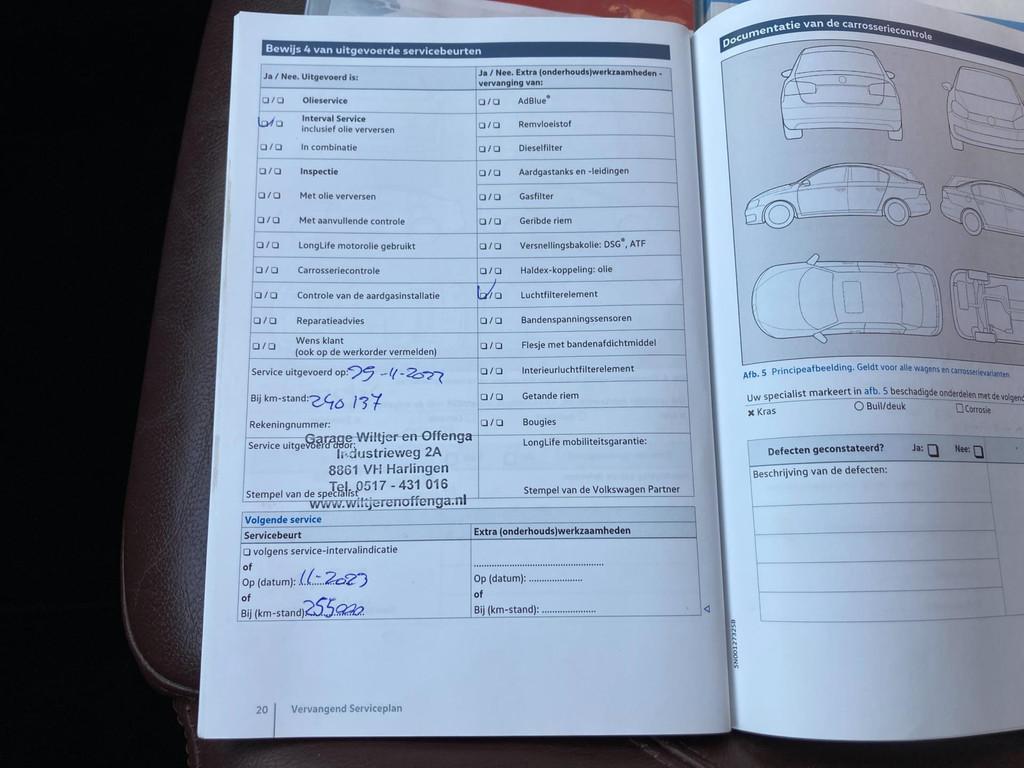 Bewijs 4 van uitgevoerde servicebeurten
Ja / Nee. Uitgevoerd is:
Ja / Nee. Extra (onderhouds)werkzaamheden - vervanging van:
Olieservice
AdBlue®
Interval Service
inclusief olie verversen
Remvloeistof
In combinatie
Dieselfilter
Inspectie
Aardgastanks en -leidingen
Met olie verversen
Gasfilter
Met aanvullende controle
Geribde riem
LongLife motorolie gebruikt
Versnellingsbakolie: DSG®, ATF
Carrosseriecontrole
Haldex-koppeling: olie
Controle van de aardgasinstallatie
Luchtfilterelement
Reparatieadvies
Bandenspanningssensoren
Wens klant
(ook op de werkorder vermelden)
Flesje met bandenafdichtmiddel
Service uitgevoerd op: 29-11-2022
Interieurluchtfilterelement
Bij km-stand: 240 137
Getande riem
Rekeningnummer:
Bougies
Service uitgevoerd door:
LongLife mobiliteitsgarantie:
Garage Wiltjer en Offenga
Industrieweg 2A
8861 VH Harlingen
Tel. 0517 - 431 016
www.wiltjerenoffenga.nl
Stempel van de specialist
Stempel van de Volkswagen Partner
Volgende service
Servicebeurt
Extra (onderhouds)werkzaamheden
volgens service-intervalindicatie
of
Op (datum): 11-2023
Op (datum): ......................
of
of
Bij (km-stand): 255000
Bij (km-stand): ......................
20 Vervangend Serviceplan
Documentatie van de carrosseriecontrole
Afb. 5 Principeafbeelding. Geldt voor alle wagens en carrosserievarianten
Uw specialist markeert in afb. 5 beschadigde onderdelen met de volgend
Kras
Buil/deuk
Corrosie
Defecten geconstateerd? Ja: Nee:
Beschrijving van de defecten:
5N0012732SB